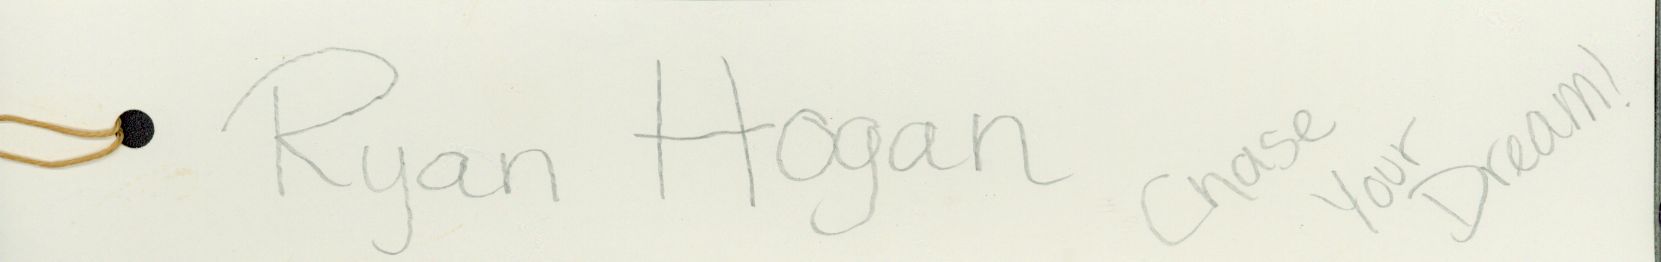 Ryan Hogan
Chase
Your
Dream!